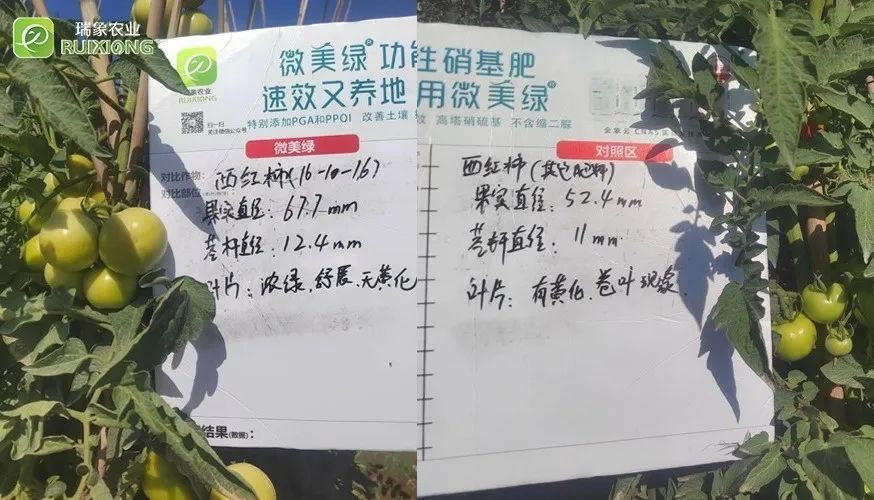 瑞象农业
RUIXIONG
瑞象农业
RUIXIONG
微美绿®功能性硝基肥
速效又养地 用微美绿®
扫一扫
关注微信公众号
特别添加PGA和PPOI 改善土壤
高塔硝硫基 不含缩二脲
微美绿
对比作物: 西红柿(16-10-16)
对比部位
果实直径: 67.7mm
茎杆直径: 12.4mm
叶片: 浓绿、舒展、无黄化
结果(数据):
对照区
西红柿(其它肥料)
果实直径: 52.4mm
茎杆直径: 11mm
叶片: 有黄化、卷叶现象.